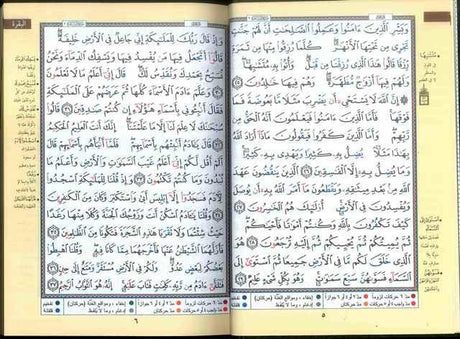 وَبَشِّرِ ٱلَّذِينَ ءَامَنُوا۟ وَعَمِلُوا۟ ٱلصَّـٰلِحَـٰتِ أَنَّ لَهُمْ جَنَّـٰتٍ
تَجْرِى مِن تَحْتِهَا ٱلْأَنْهَـٰرُ ۖ كُلَّمَا رُزِقُوا۟ مِنْهَا مِن ثَمَرَةٍ
رِّزْقًا ۙ قَالُوا۟ هَـٰذَا ٱلَّذِى رُزِقْنَا مِن قَبْلُ ۖ وَأُتُوا۟ بِهِۦ مُتَشَـٰبِهًا ۖ
وَلَهُمْ فِيهَآ أَزْوَٰجٌ مُّطَهَّرَةٌ ۖ وَهُمْ فِيهَا خَـٰلِدُونَ ٢٥
إِنَّ ٱللَّهَ لَا يَسْتَحْىِۦٓ أَن يَضْرِبَ مَثَلًا مَّا بَعُوضَةً فَمَا
فَوْقَهَا ۚ فَأَمَّا ٱلَّذِينَ ءَامَنُوا۟ فَيَعْلَمُونَ أَنَّهُ ٱلْحَقُّ مِن
رَّبِّهِمْ ۖ وَأَمَّا ٱلَّذِينَ كَفَرُوا۟ فَيَقُولُونَ مَاذَآ أَرَادَ ٱللَّهُ
بِهَـٰذَا مَثَلًا ۘ يُضِلُّ بِهِۦ كَثِيرًا وَيَهْدِى بِهِۦ كَثِيرًا ۚ
وَمَا يُضِلُّ بِهِۦٓ إِلَّا ٱلْفَـٰسِقِينَ ٢٦ ٱلَّذِينَ يَنقُضُونَ عَهْدَ
ٱللَّهِ مِنۢ بَعْدِ مِيثَـٰقِهِۦ وَيَقْطَعُونَ مَآ أَمَرَ ٱللَّهُ بِهِۦٓ أَن يُوصَلَ
وَيُفْسِدُونَ فِى ٱلْأَرْضِ ۚ أُو۟لَـٰٓئِكَ هُمُ ٱلْخَـٰسِرُونَ ٢٧
كَيْفَ تَكْفُرُونَ بِٱللَّهِ وَكُنتُمْ أَمْوَٰتًا فَأَحْيَـٰكُمْ ۖ
ثُمَّ يُمِيتُكُمْ ثُمَّ يُحْيِيكُمْ ثُمَّ إِلَيْهِ تُرْجَعُونَ ٢٨ هُوَ
ٱلَّذِى خَلَقَ لَكُم مَّا فِى ٱلْأَرْضِ جَمِيعًا ثُمَّ ٱسْتَوَىٰٓ إِلَى
ٱلسَّمَآءِ فَسَوَّىٰهُنَّ سَبْعَ سَمَـٰوَٰتٍ ۚ وَهُوَ بِكُلِّ شَىْءٍ عَلِيمٌ ٢٩
٥
البقرة
وَإِذْ قَالَ رَبُّكَ لِلْمَلَـٰٓئِكَةِ إِنِّى جَاعِلٌ فِى ٱلْأَرْضِ خَلِيفَةً ۖ
قَالُوٓا۟ أَتَجْعَلُ فِيهَا مَن يُفْسِدُ فِيهَا وَيَسْفِكُ ٱلدِّمَآءَ وَنَحْنُ
نُسَبِّحُ بِحَمْدِكَ وَنُقَدِّسُ لَكَ ۖ قَالَ إِنِّىٓ أَعْلَمُ مَا لَا تَعْلَمُونَ ٣٠
وَعَلَّمَ ءَادَمَ ٱلْأَسْمَآءَ كُلَّهَا ثُمَّ عَرَضَهُمْ عَلَى ٱلْمَلَـٰٓئِكَةِ
فَقَالَ أَنۢبِـُٔونِى بِأَسْمَآءِ هَـٰٓؤُلَآءِ إِن كُنتُمْ صَـٰدِقِينَ ٣١
قَالُوا۟ سُبْحَـٰنَكَ لَا عِلْمَ لَنَآ إِلَّا مَا عَلَّمْتَنَآ ۖ إِنَّكَ أَنتَ ٱلْعَلِيمُ ٱلْحَكِيمُ
٣٢ قَالَ يَـٰٓـَٔادَمُ أَنۢبِئْهُم بِأَسْمَآئِهِمْ ۖ فَلَمَّآ أَنۢبَأَهُم بِأَسْمَآئِهِمْ قَالَ
أَلَمْ أَقُل لَّكُمْ إِنِّىٓ أَعْلَمُ غَيْبَ ٱلسَّمَـٰوَٰتِ وَٱلْأَرْضِ وَأَعْلَمُ مَا
تُبْدُونَ وَمَا كُنتُمْ تَكْتُمُونَ ٣٣ وَإِذْ قُلْنَا لِلْمَلَـٰٓئِكَةِ ٱسْجُدُوا۟
لِـَٔادَمَ فَسَجَدُوٓا۟ إِلَّآ إِبْلِيسَ أَبَىٰ وَٱسْتَكْبَرَ وَكَانَ مِنَ ٱلْكَـٰفِرِينَ
٣٤ وَقُلْنَا يَـٰٓـَٔادَمُ ٱسْكُنْ أَنتَ وَزَوْجُكَ ٱلْجَنَّةَ وَكُلَا مِنْهَا رَغَدًا
حَيْثُ شِئْتُمَا وَلَا تَقْرَبَا هَـٰذِهِ ٱلشَّجَرَةَ فَتَكُونَا مِنَ ٱلظَّـٰلِمِينَ ٣٥
فَأَزَلَّهُمَا ٱلشَّيْطَـٰنُ عَنْهَا فَأَخْرَجَهُمَا مِمَّا كَانَا فِيهِ ۖ وَقُلْنَا ٱهْبِطُوا۟
بَعْضُكُمْ لِبَعْضٍ عَدُوٌّ ۖ وَلَكُمْ فِى ٱلْأَرْضِ مُسْتَقَرٌّ وَمَتَـٰعٌ إِلَىٰ حِينٍ
٣٦ فَتَلَقَّىٰٓ ءَادَمُ مِن رَّبِّهِۦ كَلِمَـٰتٍ فَتَابَ عَلَيْهِ ۚ إِنَّهُۥ هُوَ ٱلتَّوَّابُ ٱلرَّحِيمُ ٣٧
٦